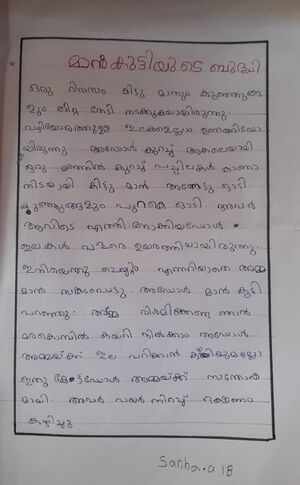 മാൻകുട്ടിയുടെ ബുദ്ധി
ഒരു ദിവസം കിട്ടു മാനും കുഞ്ഞുങ്ങ
ളും തീറ്റ തേടി നടക്കുകയായിരുന്നു.
വഴിയോരത്തുള്ള ഇലകളെല്ലാം ഉണങ്ങിയോ
യിരുന്നു. അപ്പോൾ കുറച്ച് അകലെയായി
ഒരു മരത്തിൽ കുറച്ച് പച്ചിലകൾ കാണാ
നിടയായി കിട്ടു മാൻ അങ്ങോട്ടു ഓടി.
കുഞ്ഞുങ്ങളും പുറകെ ഓടി. അവർ
അവിടെ എത്തി നോക്കിയപ്പോൾ
ഇലകൾ വളരെ ഉയരത്തിലായിരുന്നു.
ഇനിയെന്തു ചെയ്യും എന്നറിയാതെ അമ്മ
മാൻ സങ്കടപ്പെട്ടു. അപ്പോൾ മാൻ കുട്ടി
പറഞ്ഞു. അമ്മ വിഷമിക്കേണ്ട ഞാൻ
മരകൊമ്പിൽ കയറി നിൽക്കാം അപ്പോൾ
അമ്മയ്ക്ക് ഇല പറിക്കാൻ കഴിയുമല്ലോ
ഇതു കേട്ടപ്പോൾ അമ്മയ്ക്ക് സന്തോഷ
മായി. അവർ വയർ നിറച്ച് ഭക്ഷണം
കഴിച്ചു
Sanha.a 1B